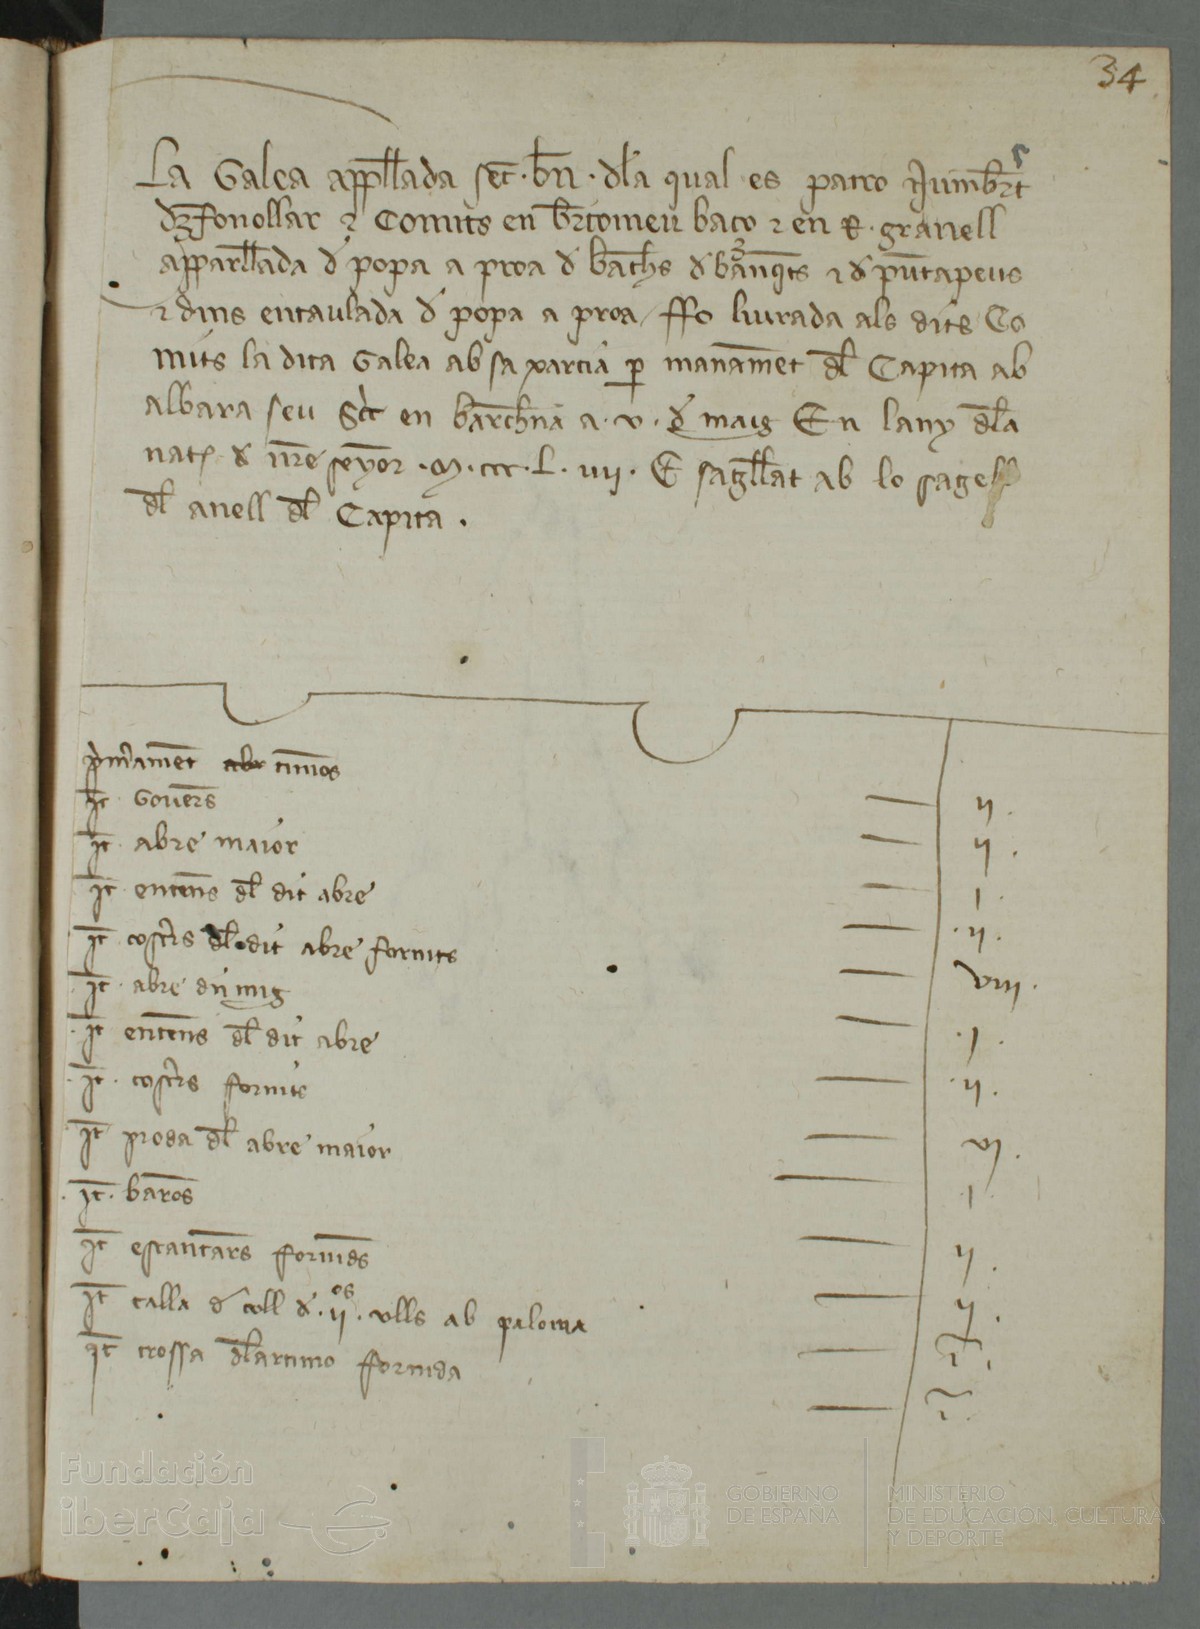 34
La Galea appllada sēt · bñ · dla qual es patro Jumbert
dezfonollar ⁊ Comits en brtomeu baco ⁊ en R · granell
apparllada d popa a proa d banchs d banquets ⁊ d puntapeus
⁊ dins entaulada d popa a proa / ffo liurada als dits Co
mits la dita Galea ab sa xarcia p manament dl Capita ab
albara seu sct en barchna a · v · d maig En lany dla
nat d nre senyor · M · ccc · L · vii · E sagllat ab lo sagell
dl anell dl Capita ·
primerament timons
It · Governs
ii ·
It · abre maior
ii ·
It · entens dl dit abre
i
It · costers dl dit abre fornits
· ii ·
It · abre dl mig
viii ·
· It entens dl dit abre
· j ·
· It · costers fornits
· ii ·
· It proda dl abre maior
vj ·
· It · barons
i ·
It escantars fornids
ii ·
It talla d coll d · ii os · ulls ab paloma
ii ·
It crossa dl artimo fornida
i ·
i ·
Fundación
iberCaja
GOBIERNO
DE ESPAÑA
MINISTERIO
DE EDUCACIÓN, CULTURA
Y DEPORTE